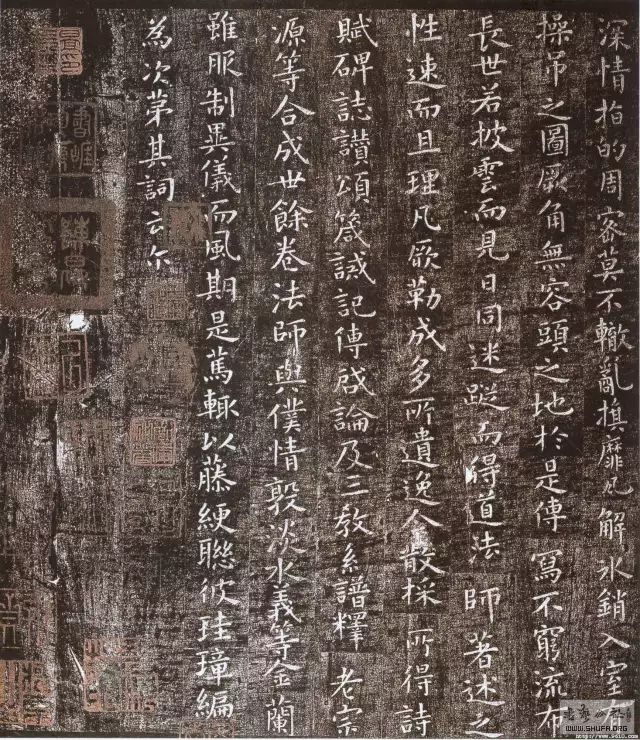 深情指的周密莫不轍亂旗靡瓦解氷銷入室有
操吊之圖厥角無容頭之地於是傳寫不窮流布
長世若披雲而見日同迷蹤而得道法師著述之
性速而且理凡厥勒成多所遺逸今散採所得詩
賦碑誌讚頌箴誡記傳啓論及三教系譜釋老宗
源等合成世餘卷法師與僕情敦淡水義等金蘭
雖服制異儀而風期是篤輒以藤綆聯彼珪璋編
為次第其詞云尔
WWW.SHUFA.ORG
http://www.9610.com